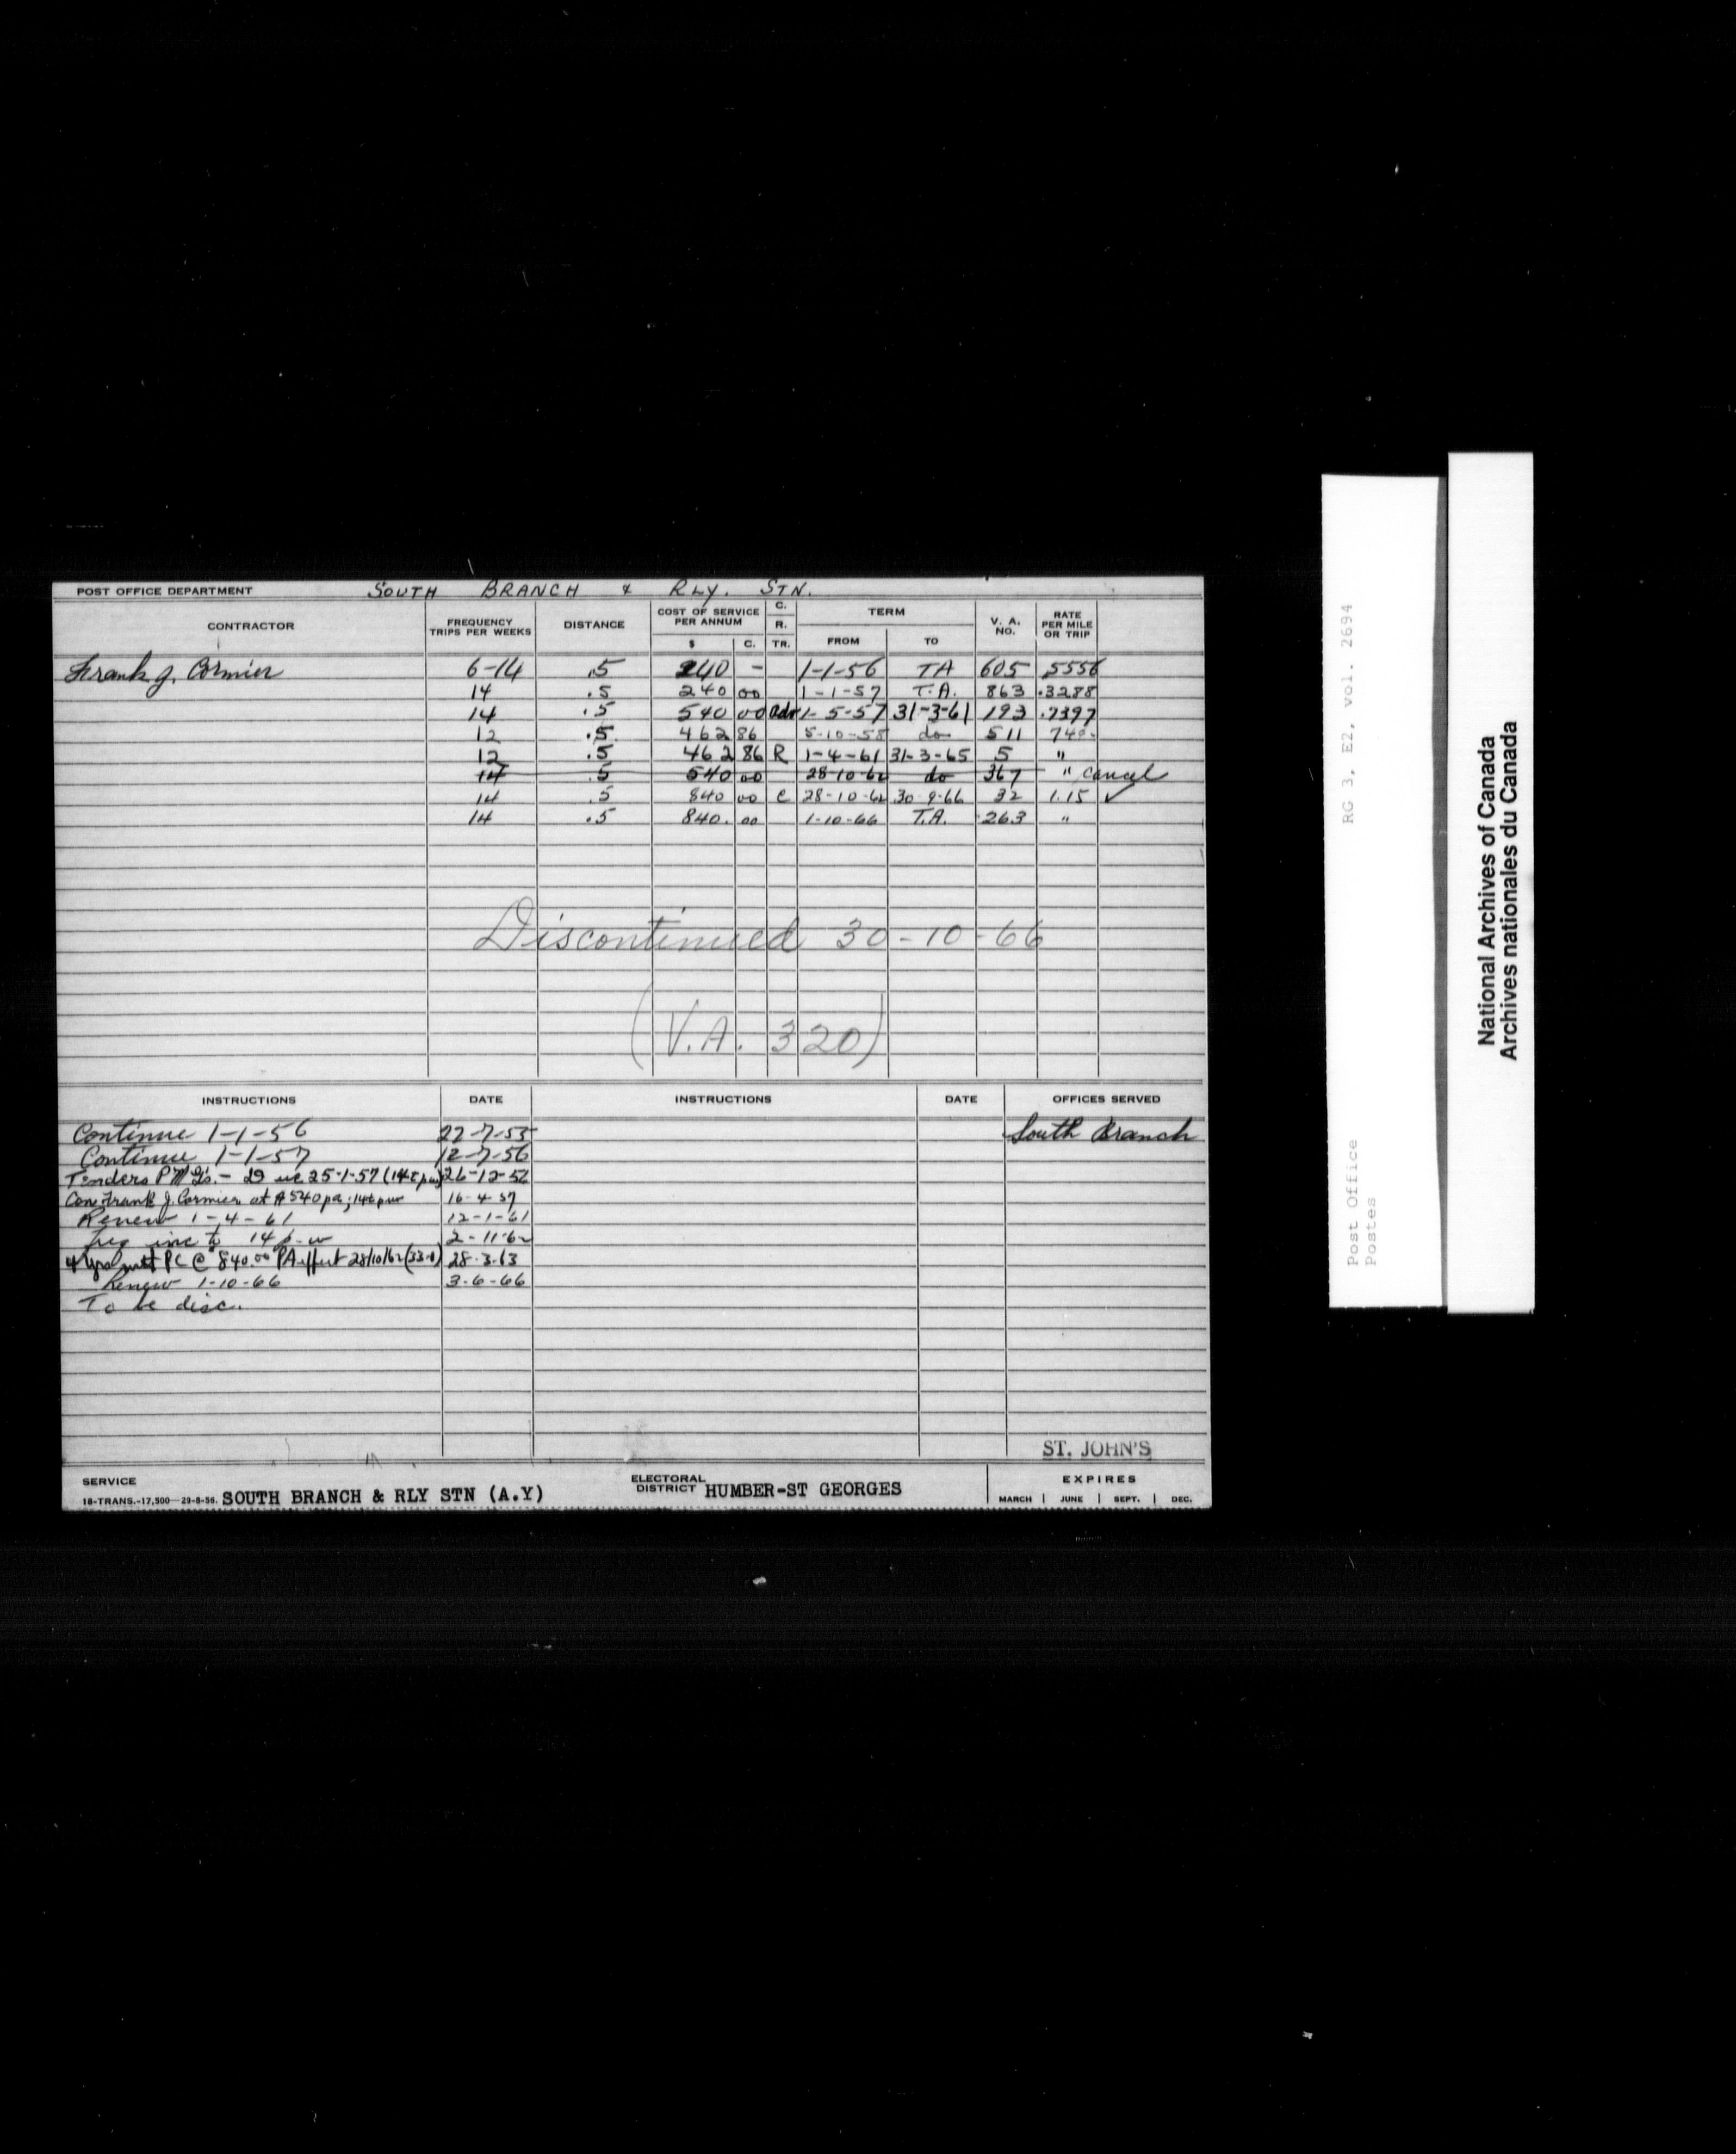 POST OFFICE DEPARTMENT SOUTH BRANCH & RLY. STN.
CONTRACTOR FREQUENCY TRIPS PER WEEKS DISTANCE COST OF SERVICE PER ANNUM $ C. C. R. TR. TERM FROM TO V. A. NO. RATE PER MILE OR TRIP
Frank J. Cormier 6-14 .5 240 - 1-1-56 TA 605 .5556
14 .5 240 00 1-1-57 T.A. 863 .3288
14 .5 540 00 adv 1-5-57 31-3-61 193 .7397
12 .5 462 86 5-10-58 do 511
12 .5 462 86 R 1-4-61 31-3-65 5 "
14 .5 540 00 28-10-62 do 367 " cancel
14 .5 840 00 C 28-10-62 30-9-66 32 1.15 ✓
14 .5 840. 00 1-10-66 T.A. 263 "
Discontinued 30-10-66
(V.A. 320)
INSTRUCTIONS DATE INSTRUCTIONS DATE OFFICES SERVED
Continue 1-1-56 22-7-55 South Branch
Continue 1-1-57 12-7-56
Tenders 25-1-57 26-12-56
Con Frank J. Cormier at $540 pa, 14t pw 16-4-57
Renew 1-4-61 12-1-61
freq inc to 14 p-w 2-11-62
4 PC @ $840.00 PA effect 28/10/62 28-3-63
Renew 1-10-66 3-6-66
To be disc.
ST. JOHN'S
SERVICE
18-TRANS.-17,500-29-8-56. SOUTH BRANCH & RLY STN (A.Y) ELECTORAL DISTRICT HUMBER-ST GEORGES EXPIRES MARCH | JUNE | SEPT. | DEC.
RG 3, E2, vol. 2694
Post Office
Postes
National Archives of Canada
Archives nationales du Canada